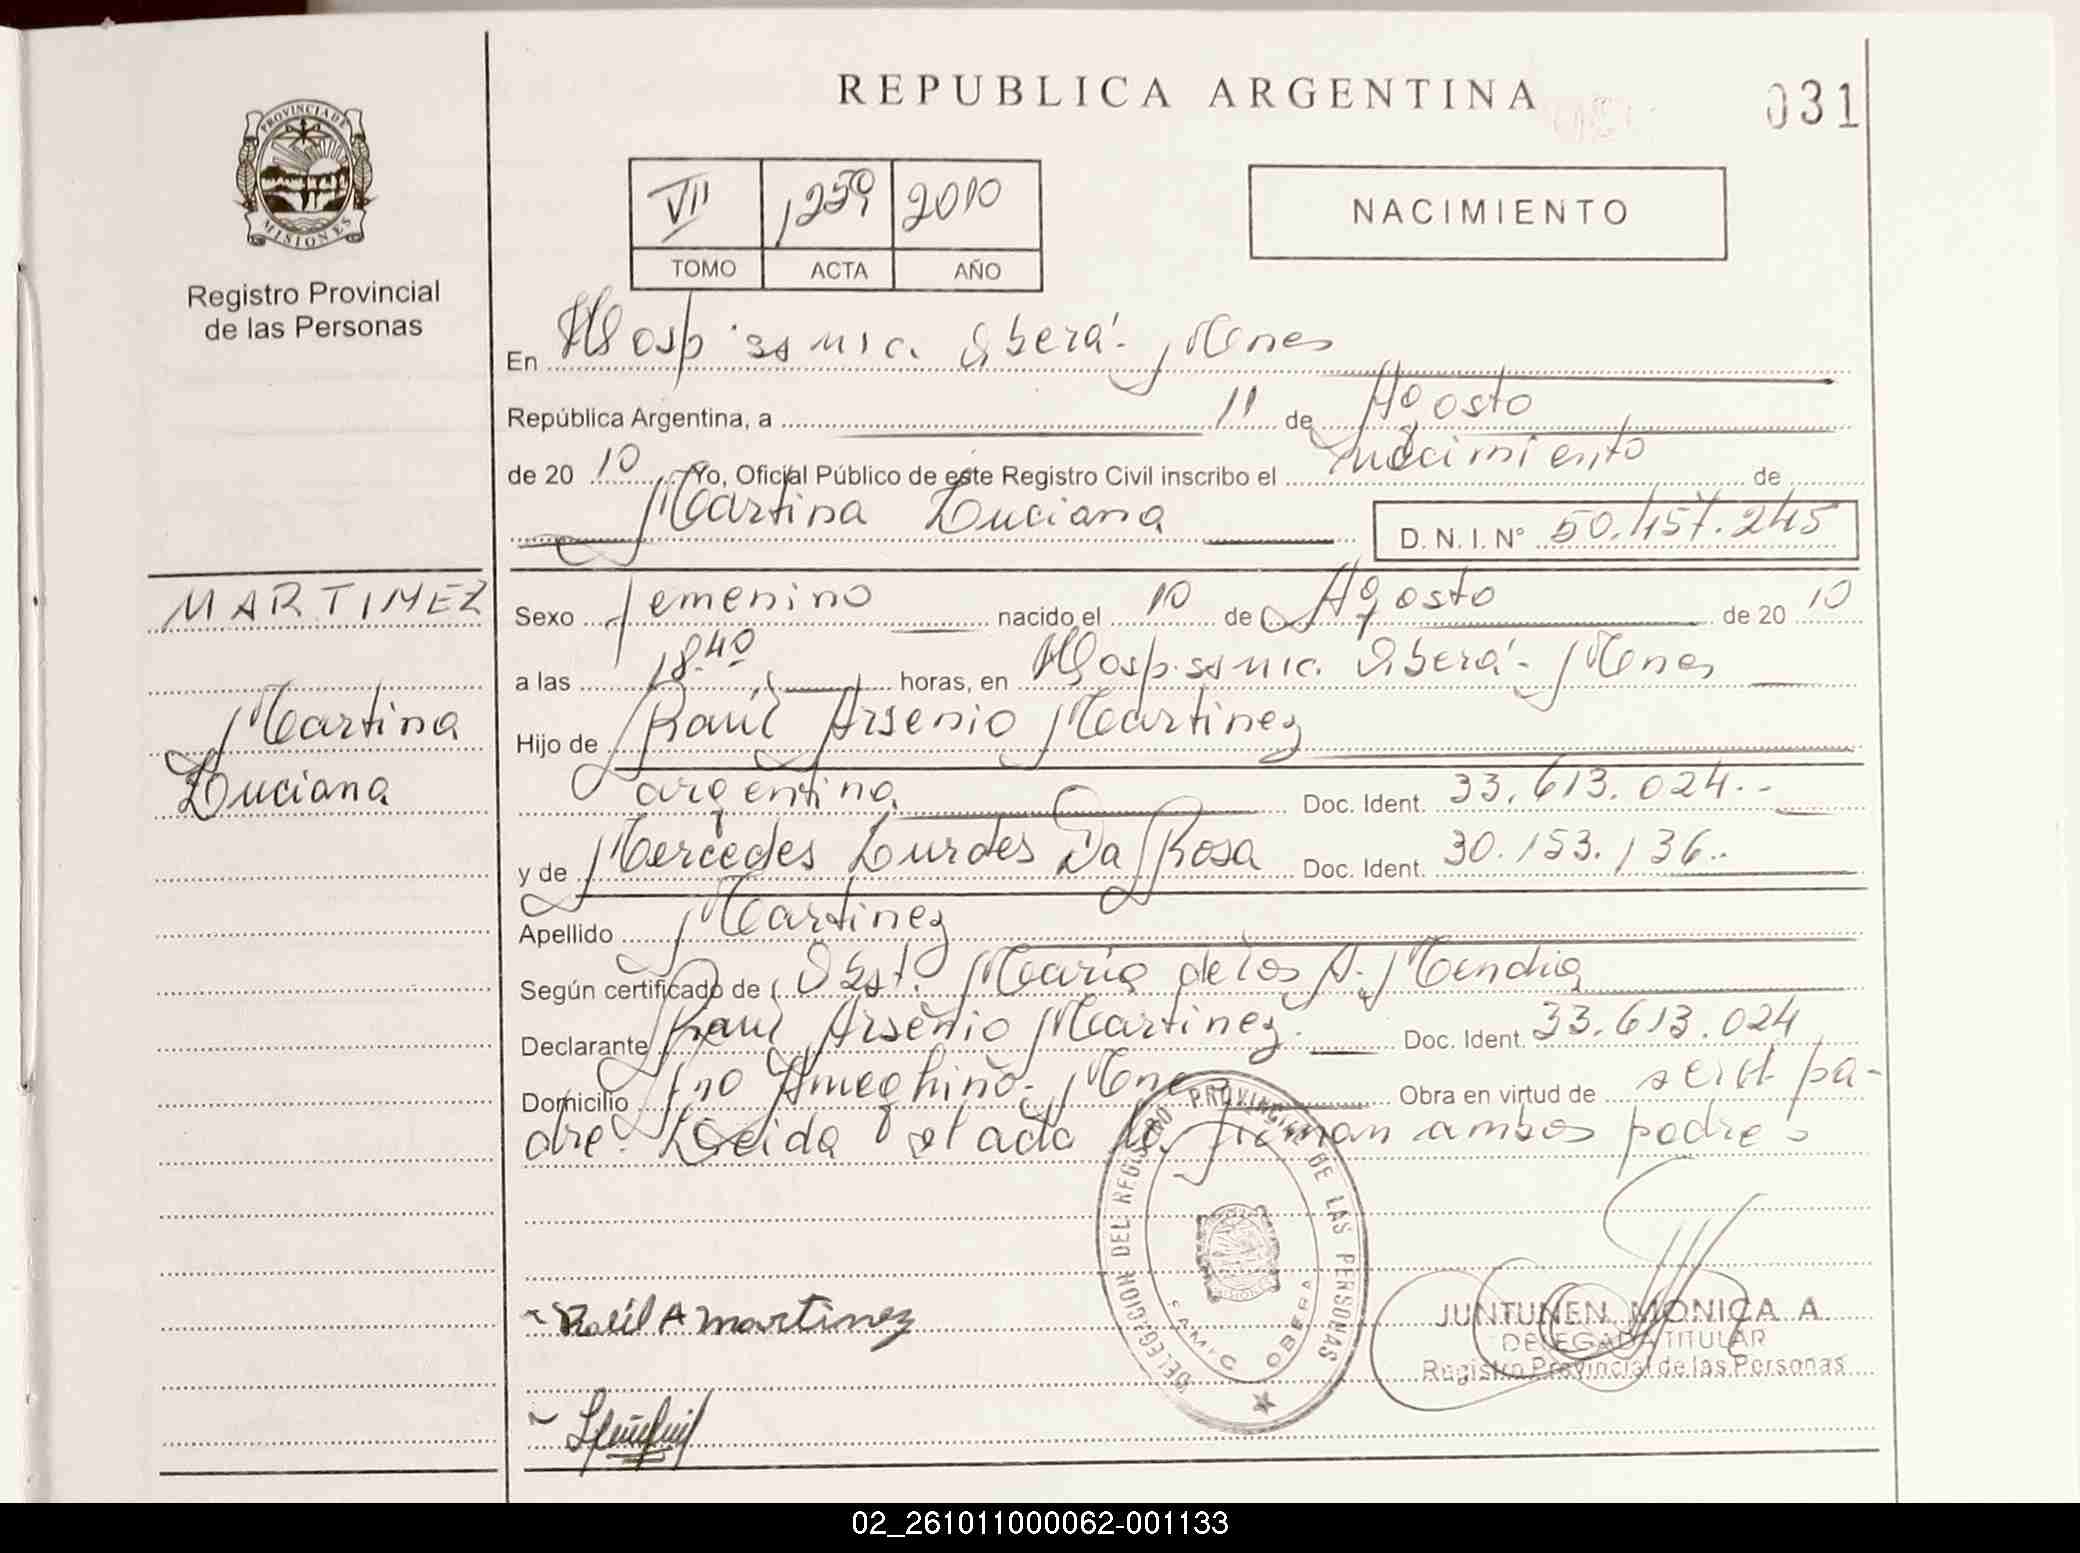 REPUBLICA ARGENTINA
031
PROVINCIA DE MISIONES
Registro Provincial
de las Personas
VII 1259 2010
TOMO ACTA AÑO
NACIMIENTO
En Hosp. Obera - Mnes
República Argentina, a 11 de Agosto
de 20 10 Yo, Oficial Público de este Registro Civil inscribo el nacimiento de
Martina Luciana D. N. I. N° 50.457.245
MARTINEZ
Martina
Luciana
Sexo femenino nacido el 10 de Agosto de 20 10
a las 18.40 horas, en Hosp. Obera - Mnes
Hijo de Raul Arsenio Martinez
argentina Doc. Ident. 33.613.024
y de Mercedes Lurdes Da Rosa Doc. Ident. 30.153.136
Apellido Martinez
Según certificado de Obst. Maria de los A. Mendia
Declarante Raul Arsenio Martinez. Doc. Ident. 33.613.024
Domicilio Fno Ameghino - Mnes Obra en virtud de ser el pa-
dre. Leida el acta la firman ambos padres
DELEGACION DEL REGISTRO PROVINCIAL DE LAS PERSONAS
OBERA
Raúl A martinez
JUNTUNEN MONICA A.
DELEGADA TITULAR
Registro Provincial de las Personas
02_261011000062-001133